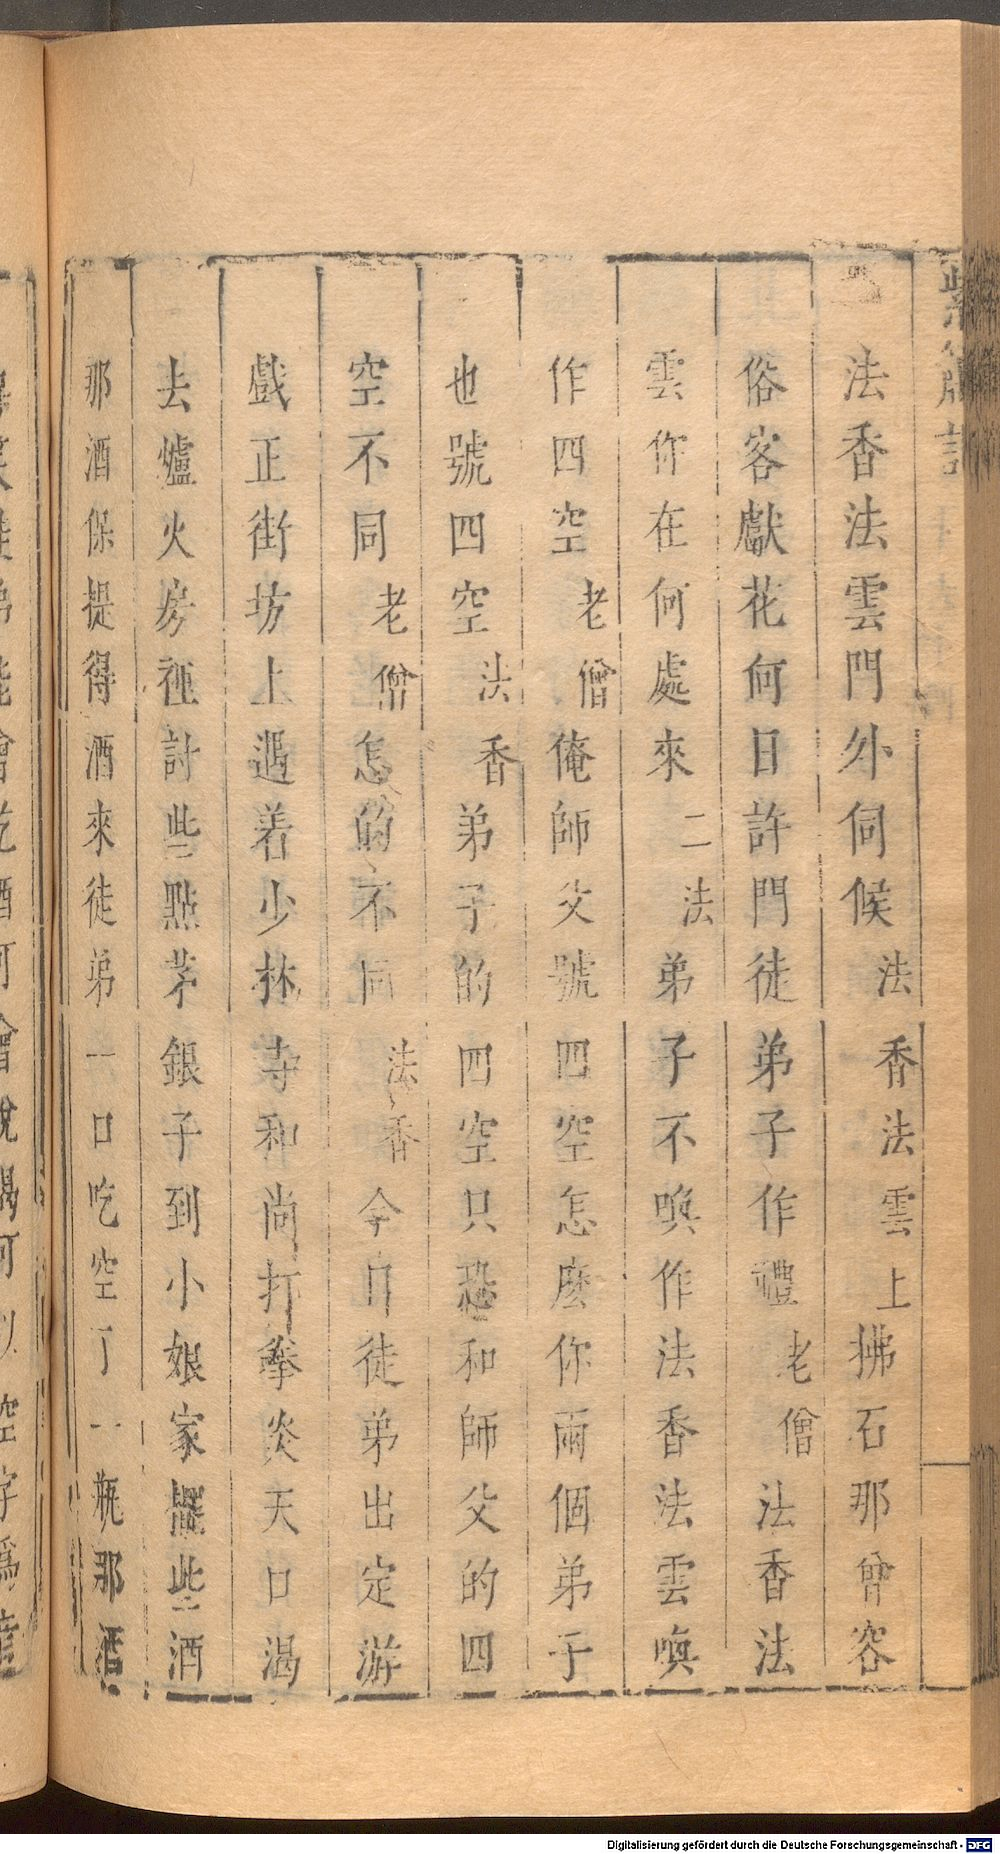 法香法雲門外伺候法香法雲上拂石那曾容
俗客獻花何日許門徒弟子作禮老僧法香法
雲你在何處來二法弟子不喚作法香法雲喚
作四空老僧俺師父號四空怎麽你兩個弟子
也號四空法香弟子的四空只恐和師父的四
空不同老僧怎的不同法香今日徒弟出定游
戲正街坊上遇着少林寺和尚打拳炎天口渴
去爐火房裡討些點茅銀子到小娘家擺些酒
那酒保提得酒來徒弟一口吃空了一瓶那酒
Digitalisierung gefördert durch die Deutsche Forschungsgemeinschaft - DFG